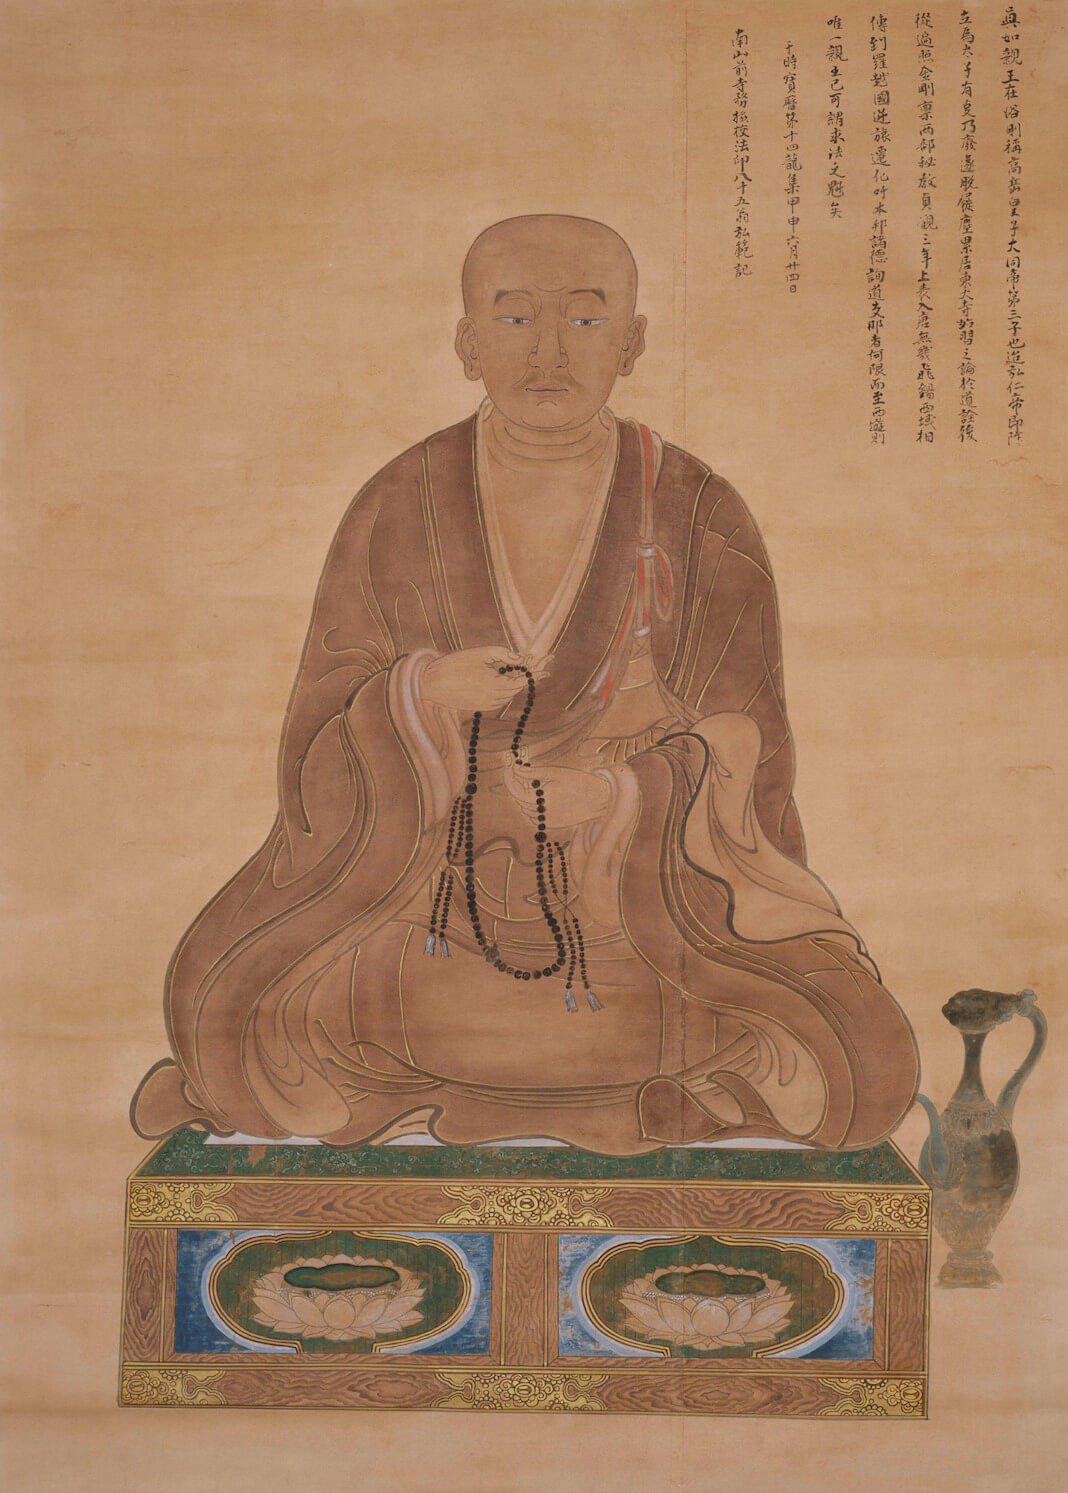 真如親王在俗則稱高岳皇子大同帝第三子也迨弘仁帝即阼
立為太子有憂乃廢遂脫屣塵累居東大寺始習之論於道詮後
從遍照金剛禀兩部秘教貞觀三年上表入唐無幾飛錫西域相
傳到羅越國逆旅遷化吁本邦諸德詢道支那者何限而至西遊則
唯一親王已可謂求法之魁矣
于時寶曆第十四龍集甲申六月廿四日
南山前寺務撿挍法印八十五翁弘範記